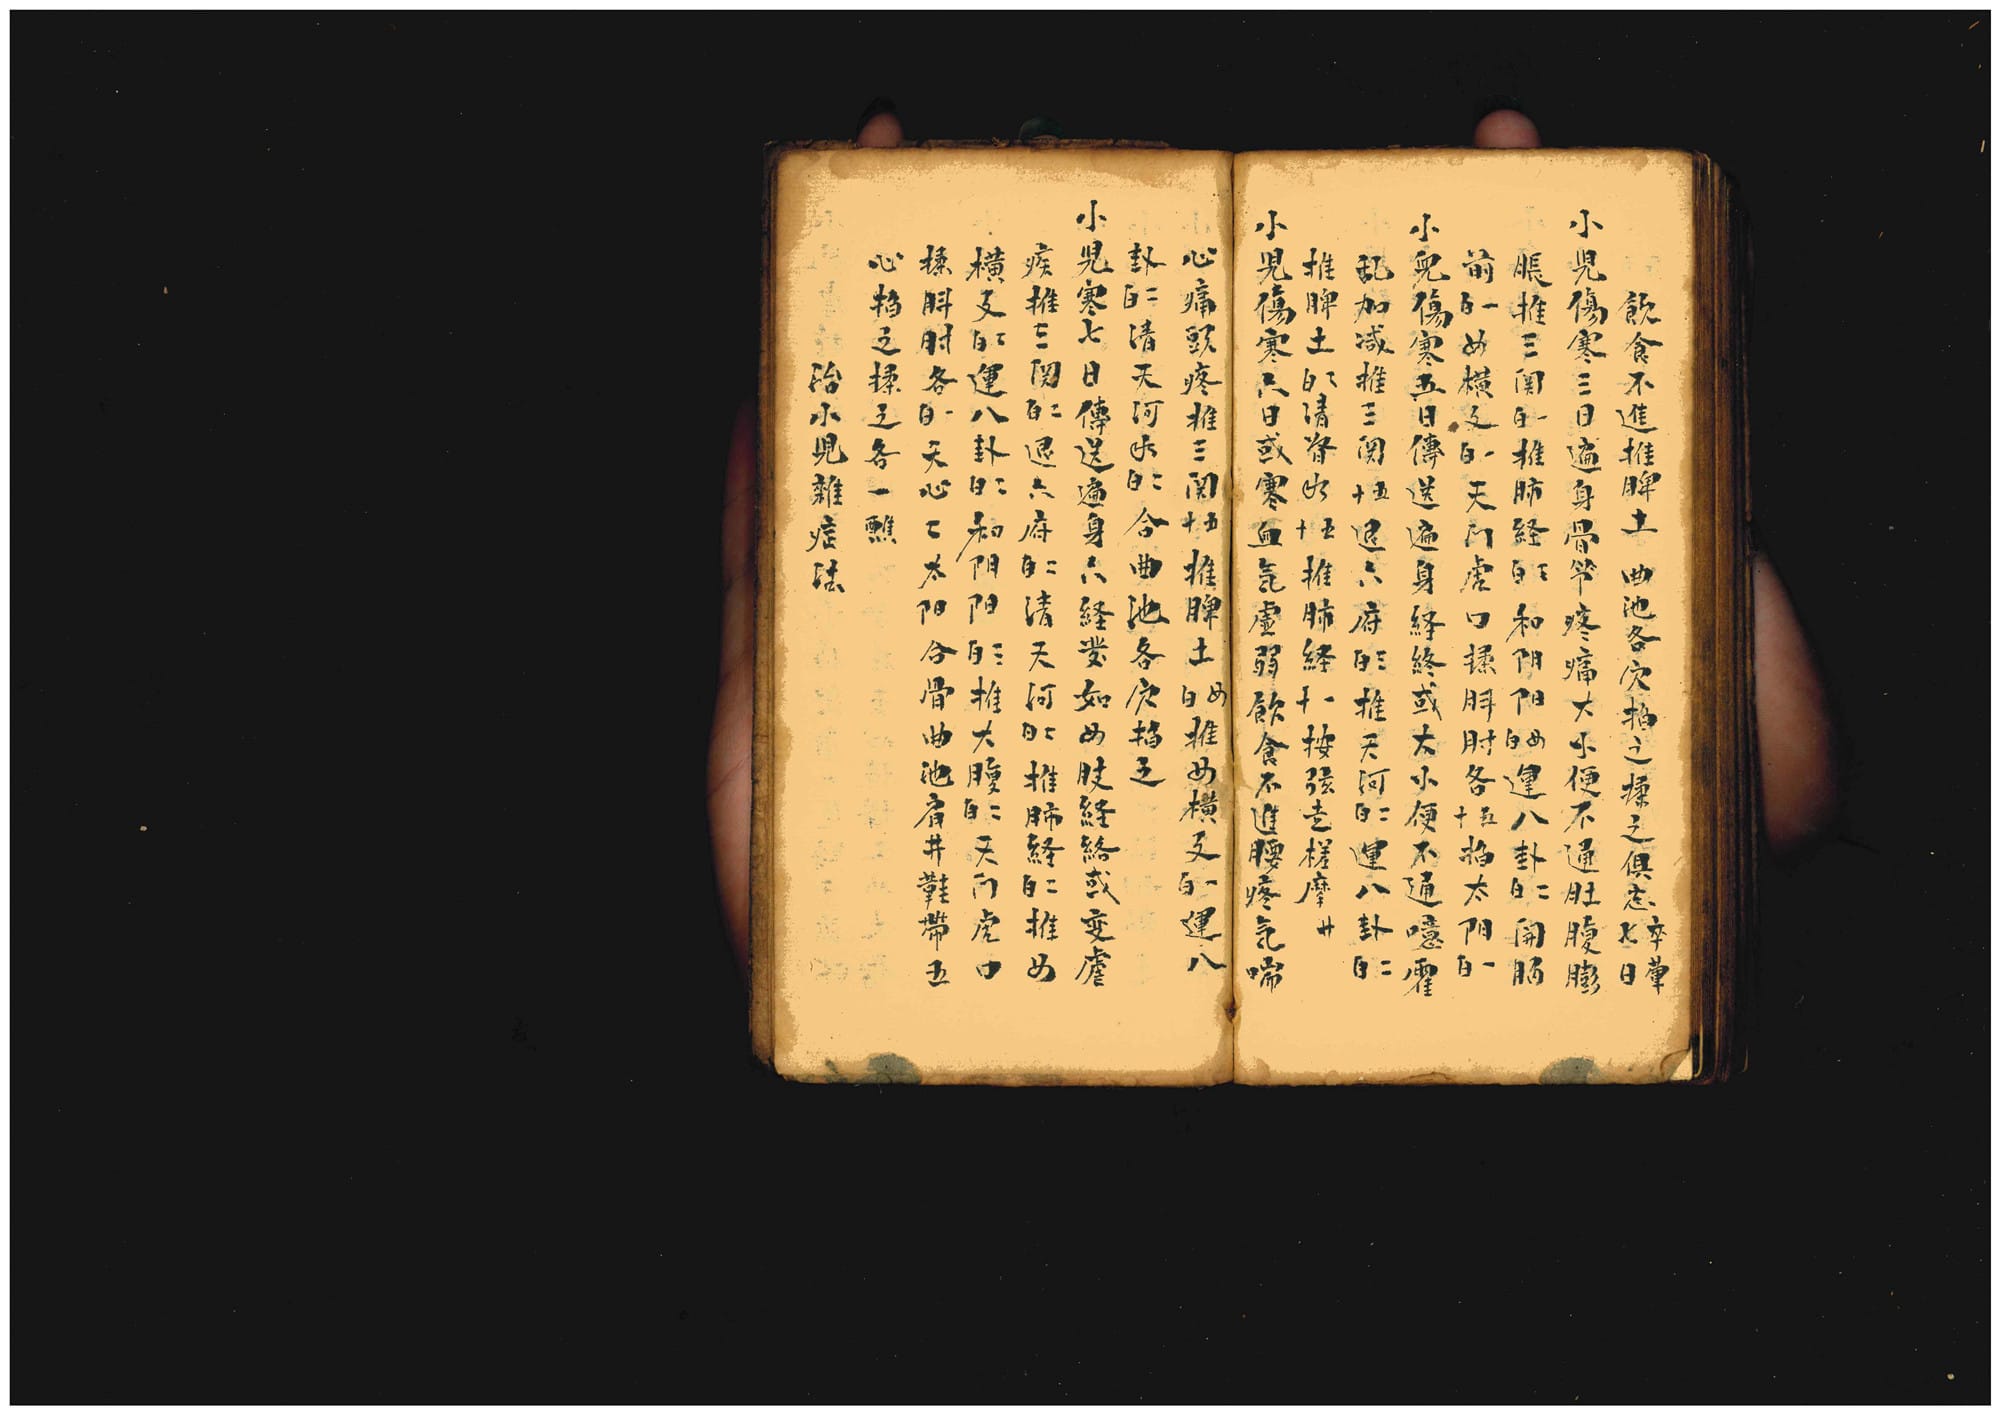 飲食不進推脾土曲池各穴掐之揉之俱忌荤七日
小児傷寒三日遍身骨节疼痛大小便不通肚腹膨
脹推三関百一推肺経百二和阴阳四百運八卦百二開胸
前百一四横文百一天门虎口揉䏔肘各十五掐太阳百一
小兒傷寒五日傳送遍身経絡或大小便不通噫霍
乱加减推三関十五退六府百三推天河百二運八卦百二
推脾土百二清腎水十五推肺経十一按弦走槎摩廾
小児傷寒六日或寒血氣虚弱飲食不進腰疼气喘
心痛頭疼推三関十五推脾土四百推四横文百一運八
卦百二清天河水百二合曲池各穴掐之
小児寒七日傳送遍身六経發如四肢経絡或变虐
疾推三関百二退六府百二清天河百二推肺経百二推四
横文百二運八卦百二和阴阳百三推大腹百二天门虎口
揉䏔肘各百一天心二太阳合骨曲池肩井鞋帶五
心掐之揉之各一醮
治小児雜症法